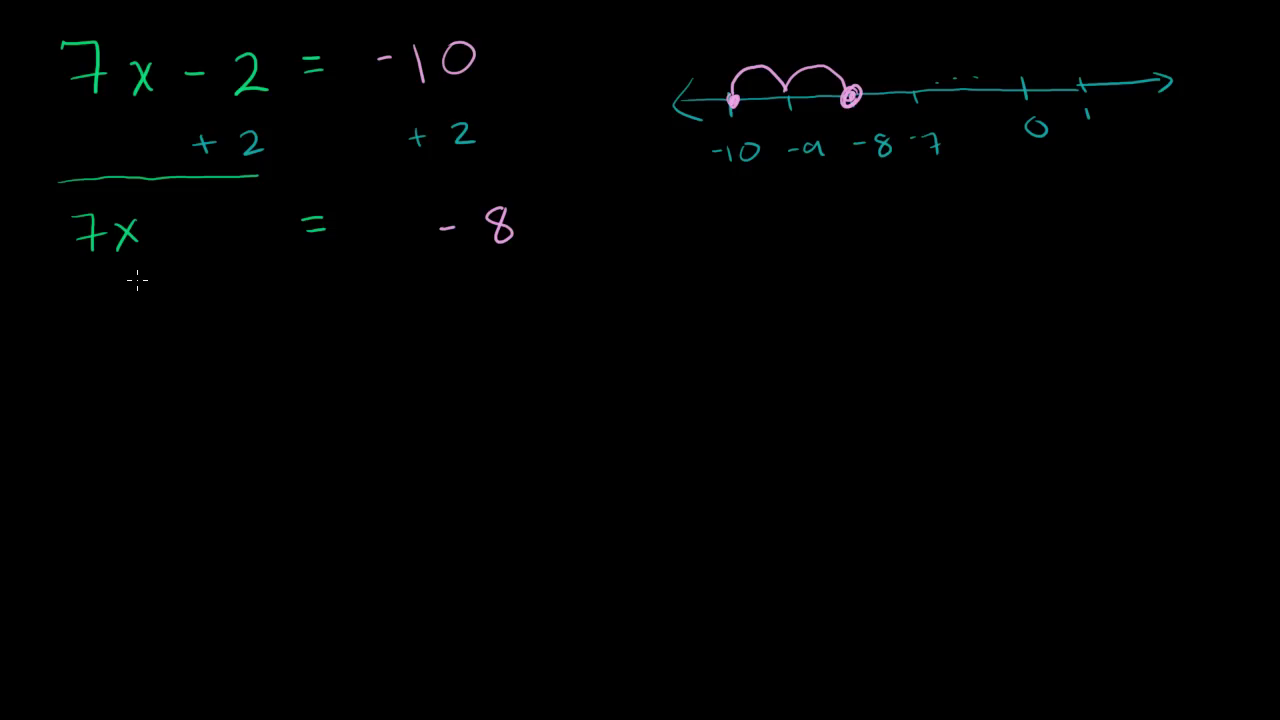 7x - 2 = -10
+ 2 + 2
7x = - 8
-10 -9 -8 -7 ... 0 1